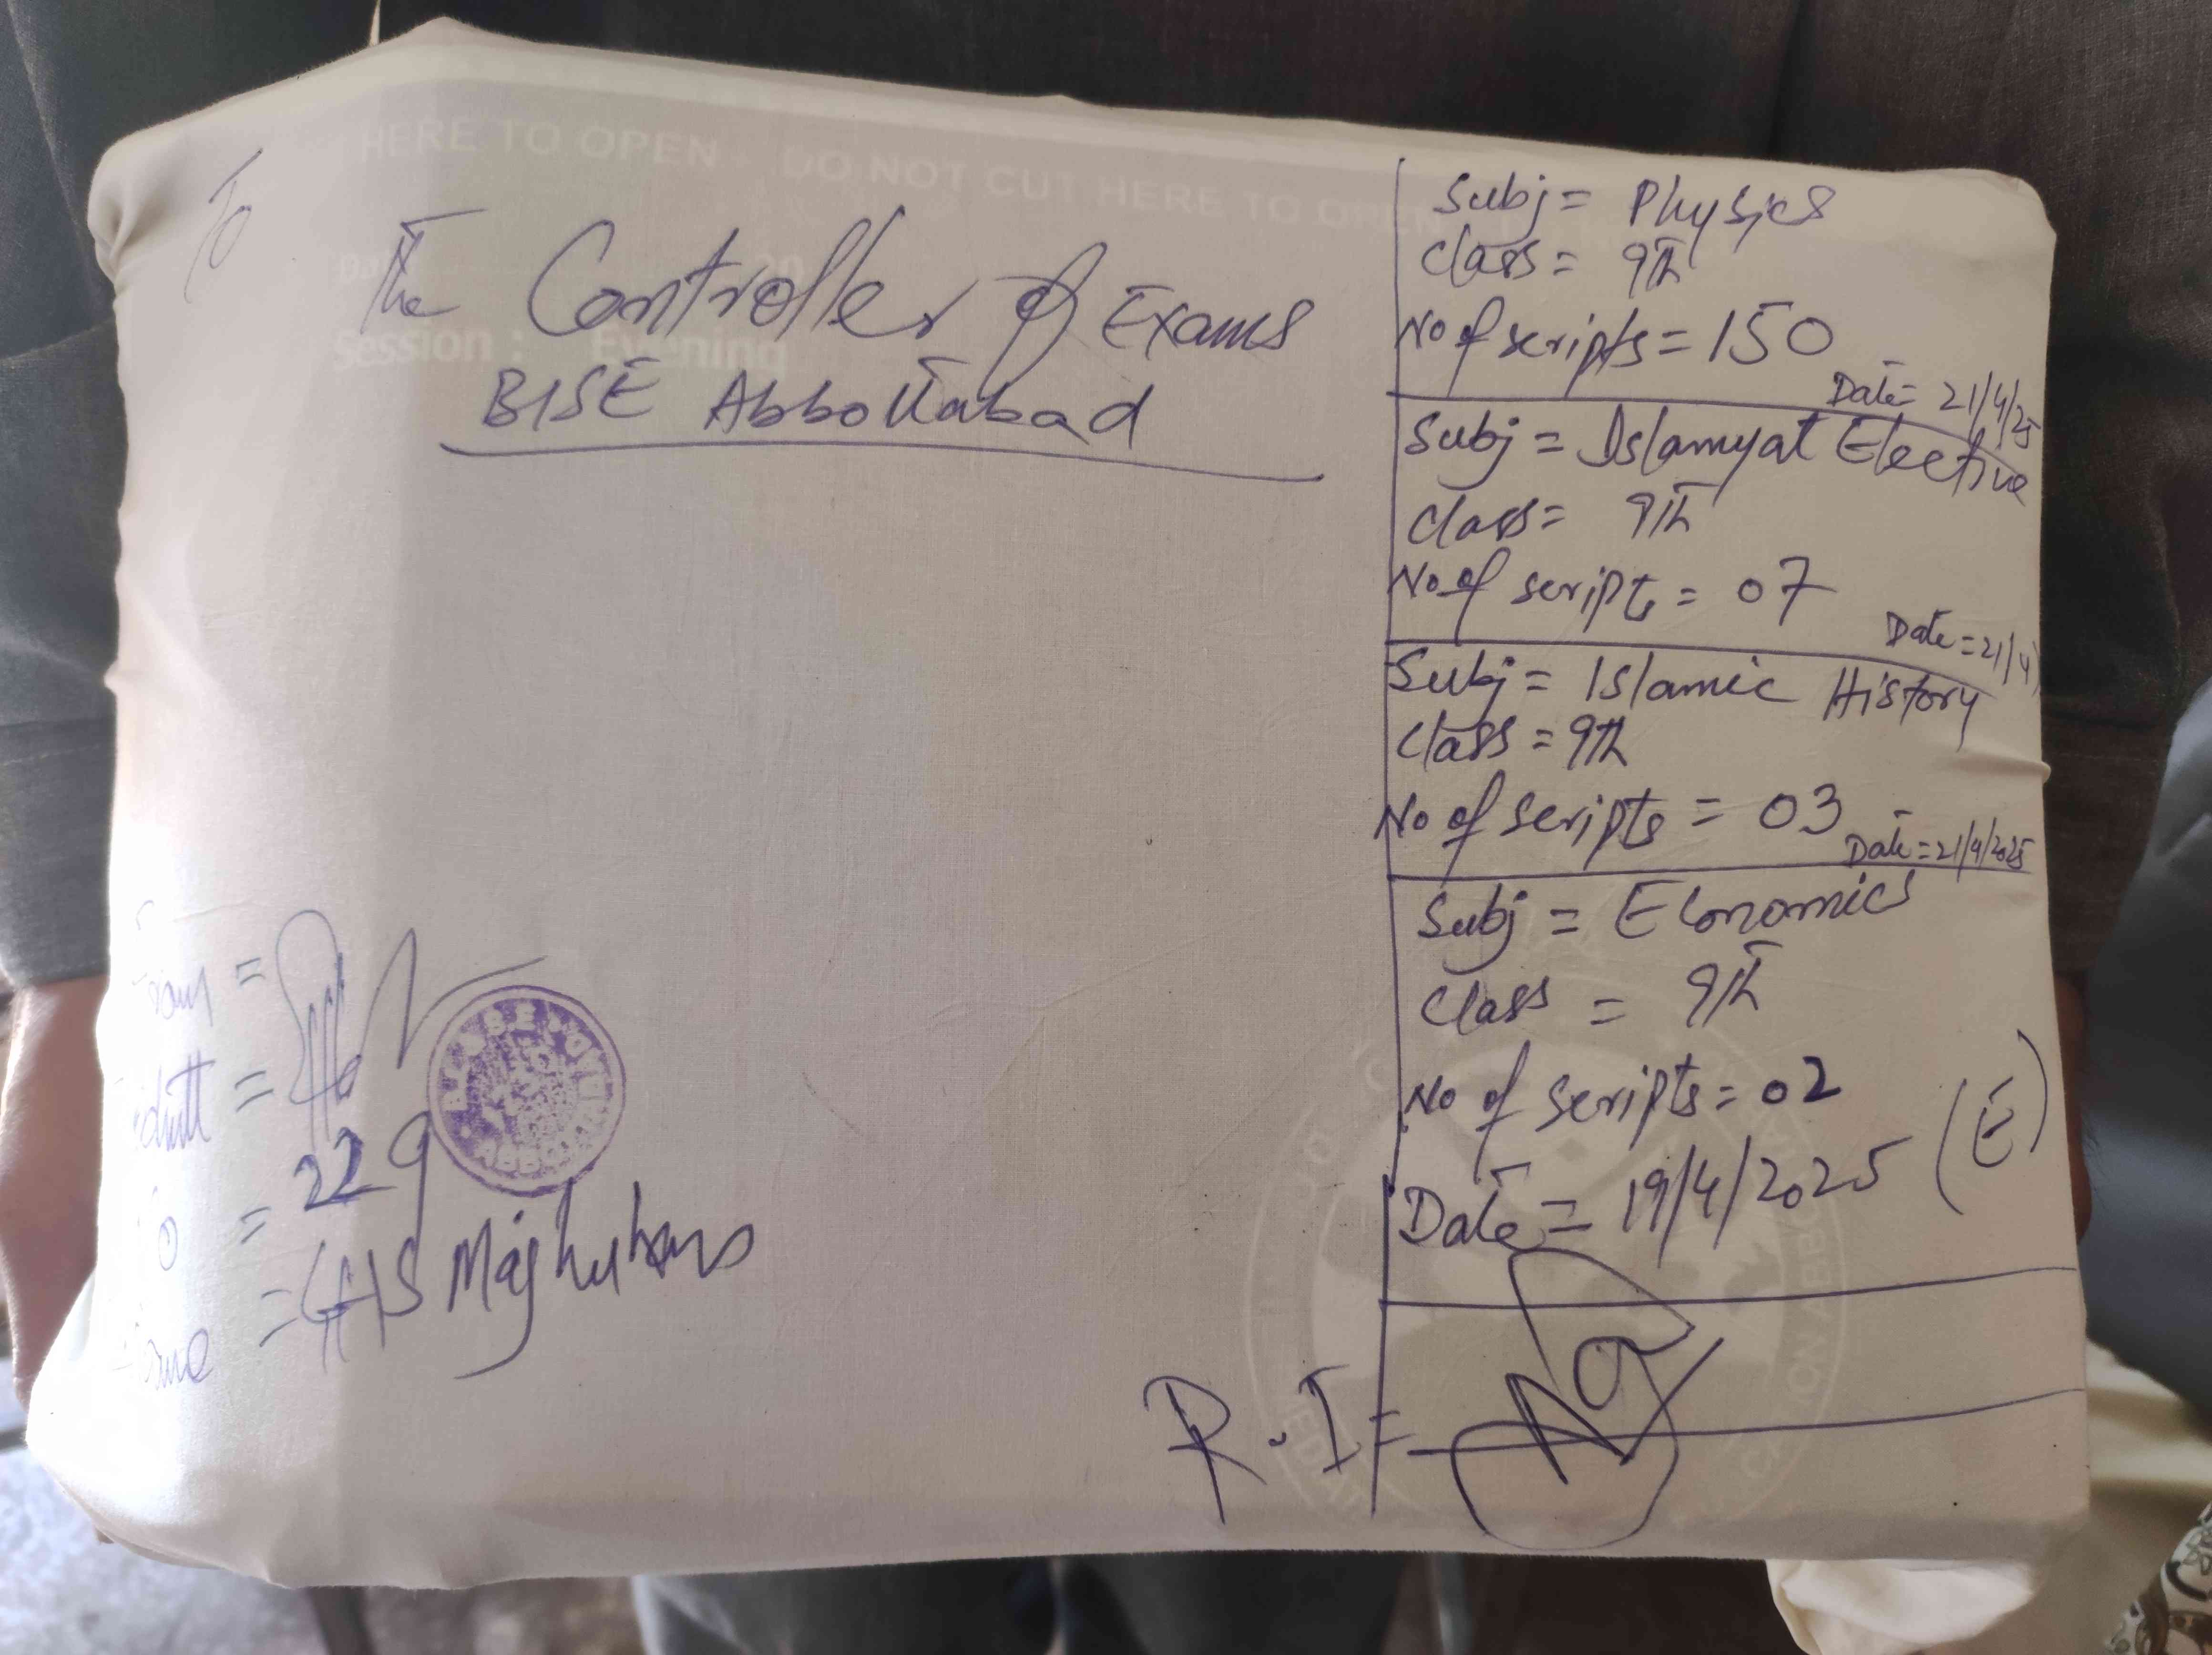 HERE TO OPEN DO NOT CUT HERE TO OPEN
To
The Controller of Exams
Session : Evening
BISE Abbottabad
Subj = Physics
Class = 9th
No of scripts = 150
Date = 21/4/25
Subj = Islamyat Elective
Class = 9th
No of scripts = 07
Date = 21/4
Subj = Islamic History
Class = 9th
No of scripts = 03
Date = 21/4/2025
Subj = Economics
Class = 9th
No of scripts = 02
Date = 19/4/2025 (E)
R.I =
=
=
= 229
= GHS